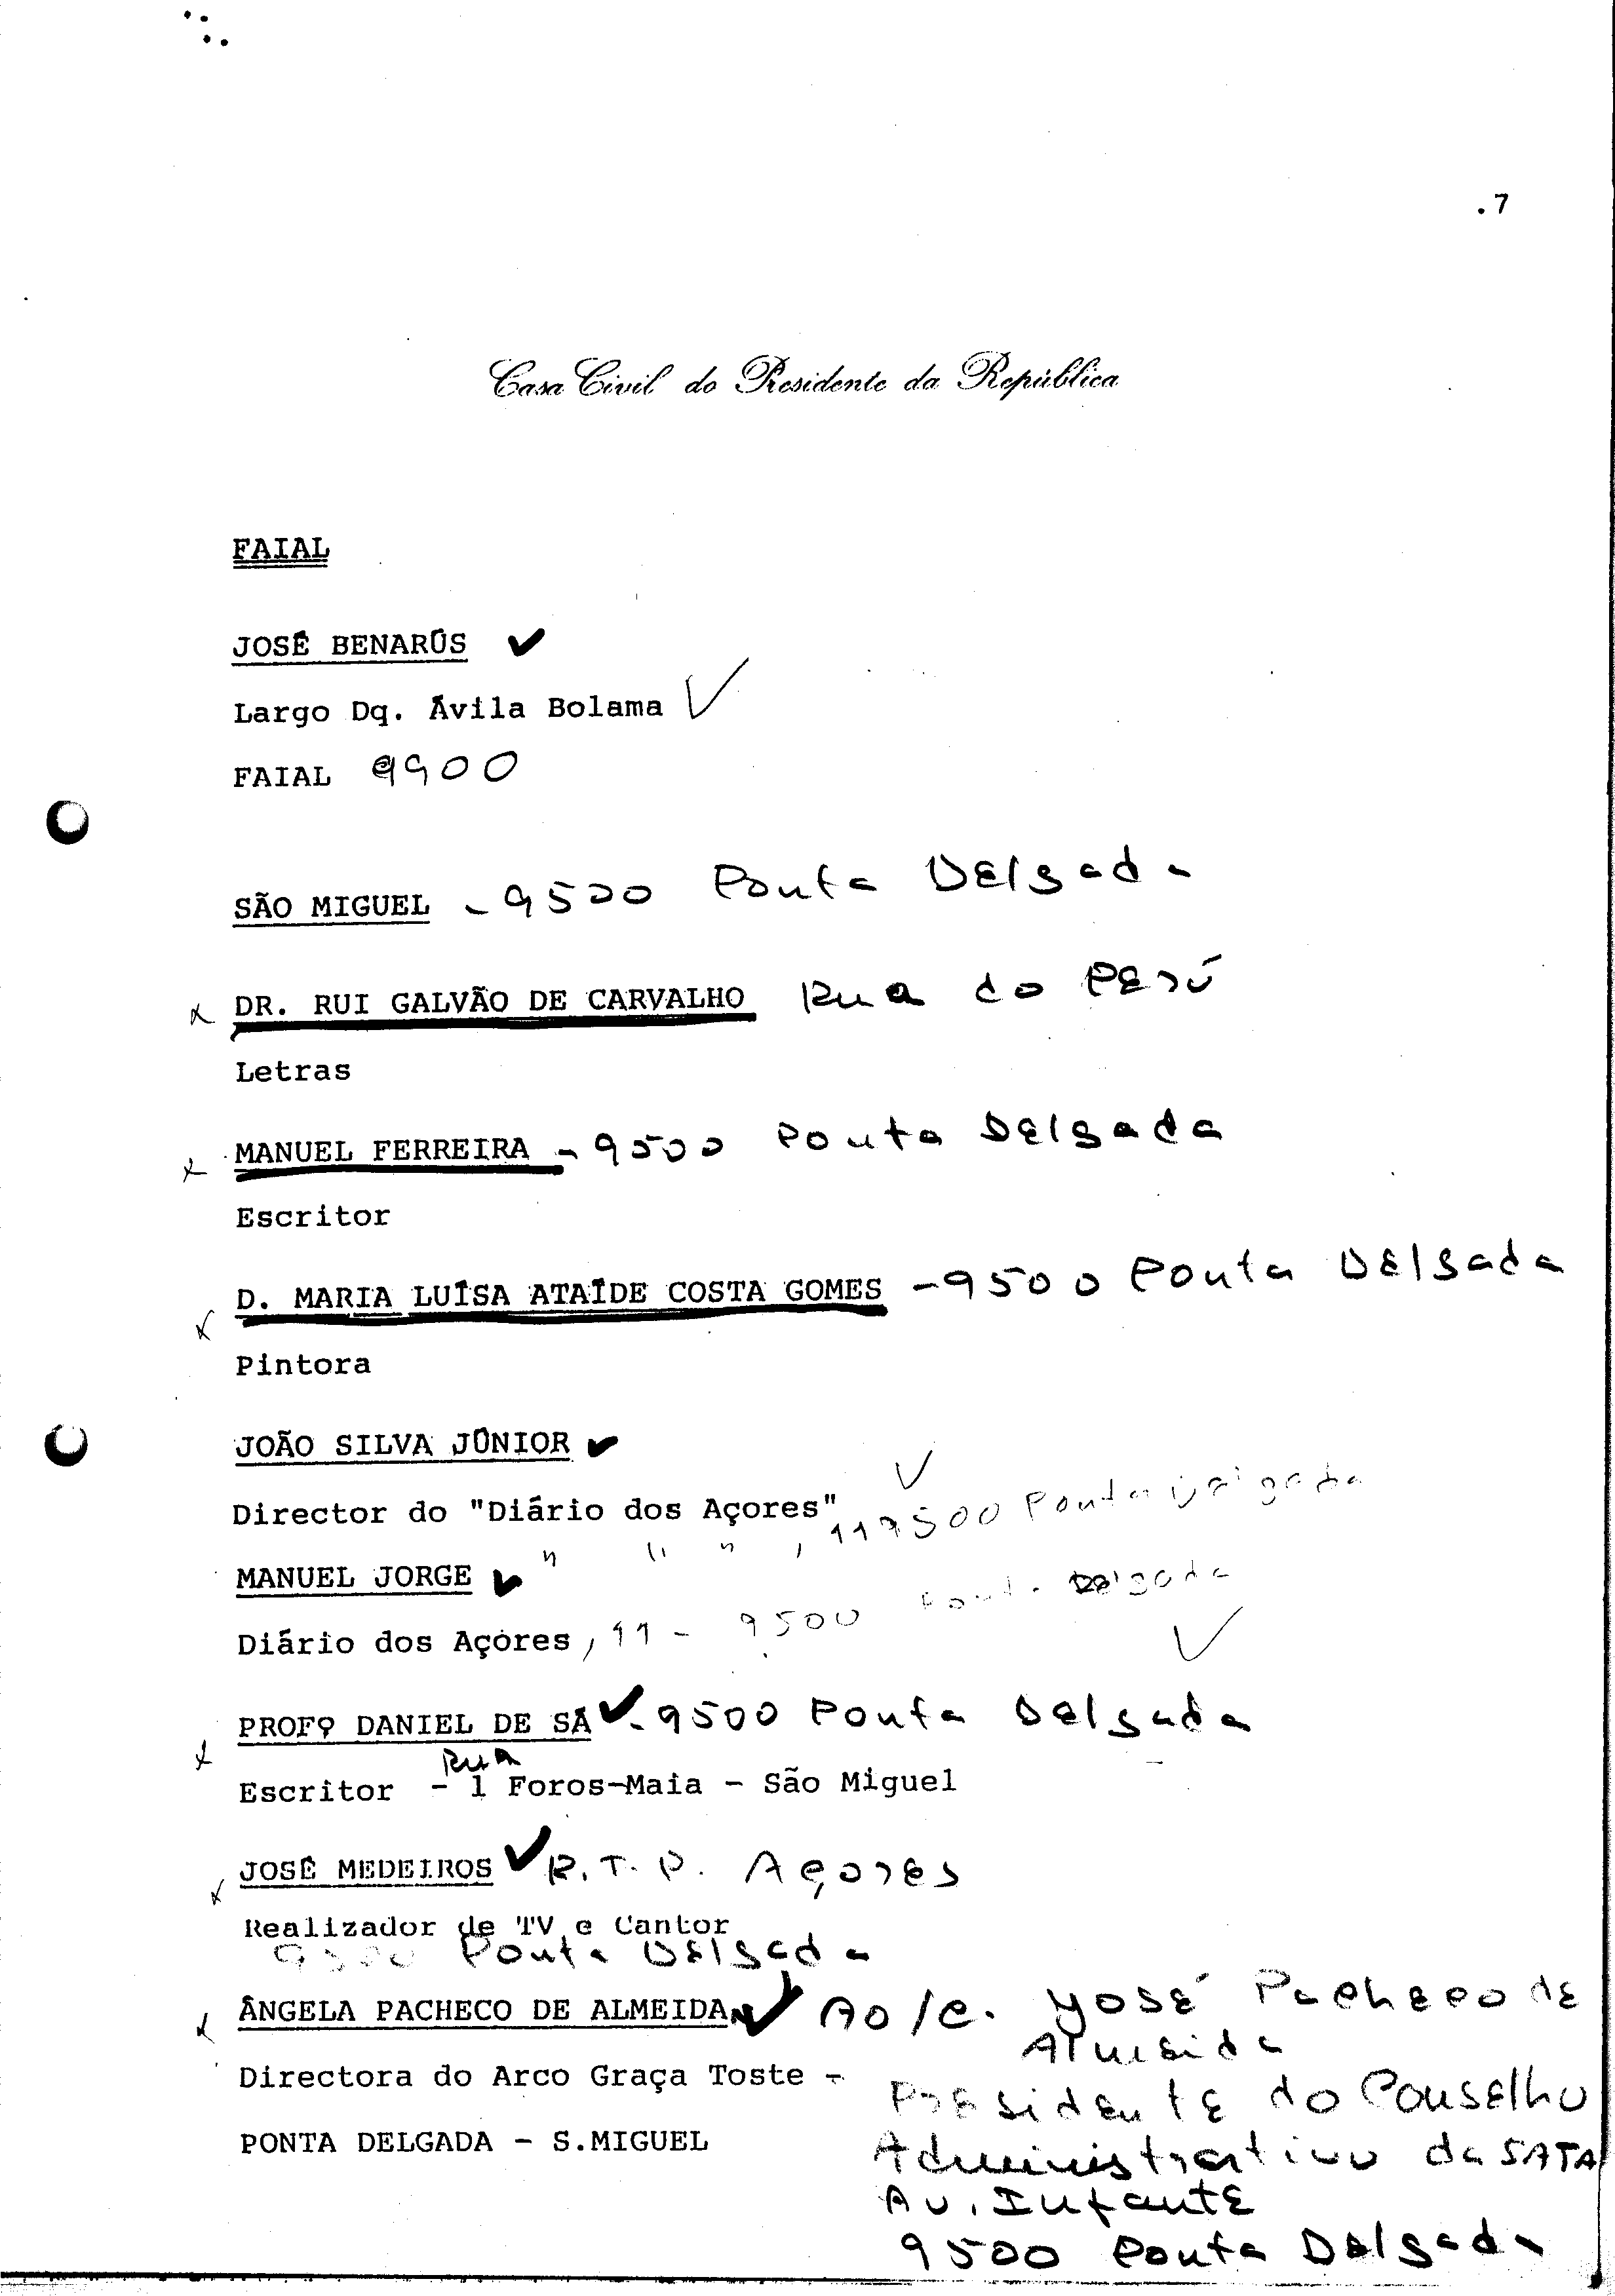 .7
Casa Civil do Presidente da República
FAIAL
JOSÉ BENARÚS ✓
Largo Dq. Ávila Bolama ✓
FAIAL 9900
SÃO MIGUEL - 9500 Ponta Delgada
x DR. RUI GALVÃO DE CARVALHO Rua do Perú
Letras
x MANUEL FERREIRA - 9500 Ponta Delgada
Escritor
x D. MARIA LUÍSA ATAÍDE COSTA GOMES - 9500 Ponta Delgada
Pintora
JOÃO SILVA JÚNIOR ✓
Director do "Diário dos Açores", 11 9500 Ponta Delgada ✓
MANUEL JORGE ✓ " " "
Diário dos Açores, 11 - 9500 Ponta Delgada
x PROFº DANIEL DE SÁ ✓ - 9500 Ponta Delgada ✓
Rua
Escritor - 1 Foros-Maia - São Miguel
x JOSÉ MEDEIROS ✓ R.T.P. Açores
Realizador de TV e Cantor
9500 Ponta Delgada
x ÂNGELA PACHECO DE ALMEIDA ✓ Ao/c. José Pacheco de
Almeida
Directora do Arco Graça Toste -
Presidente do Conselho
PONTA DELGADA - S.MIGUEL
Administrativo da SATA
Av. Infante
9500 Ponta Delgada